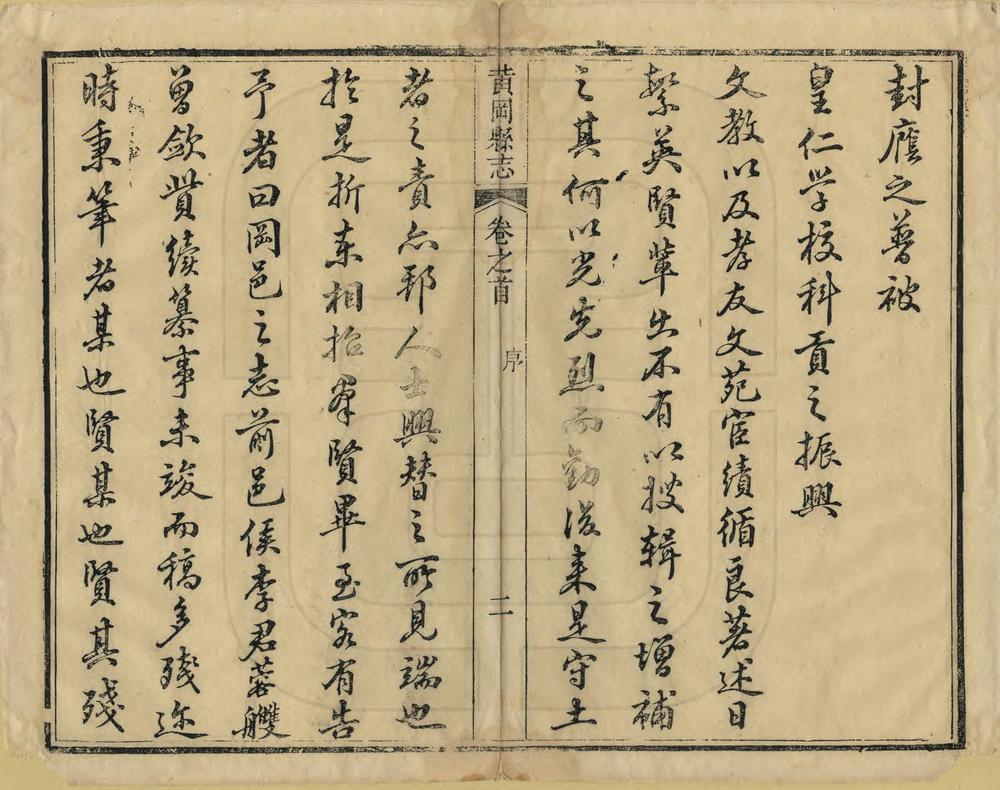 封廕之普被
皇仁学校科貢之振興
文教以及孝友文苑宦績循良著述日
繁英賢輩出不有以搜輯之增補
之其何以光先烈而勸後来是守土
黃岡縣志 卷之首 序 二
者之責亦郡人士興替之所見端也
於是折柬相招羣賢畢至客有告
予者曰岡邑之志前邑侯李君蓉艭
曾歛貲續纂事未竣而稿多殘迩
時秉筆者某也賢某也賢其殘